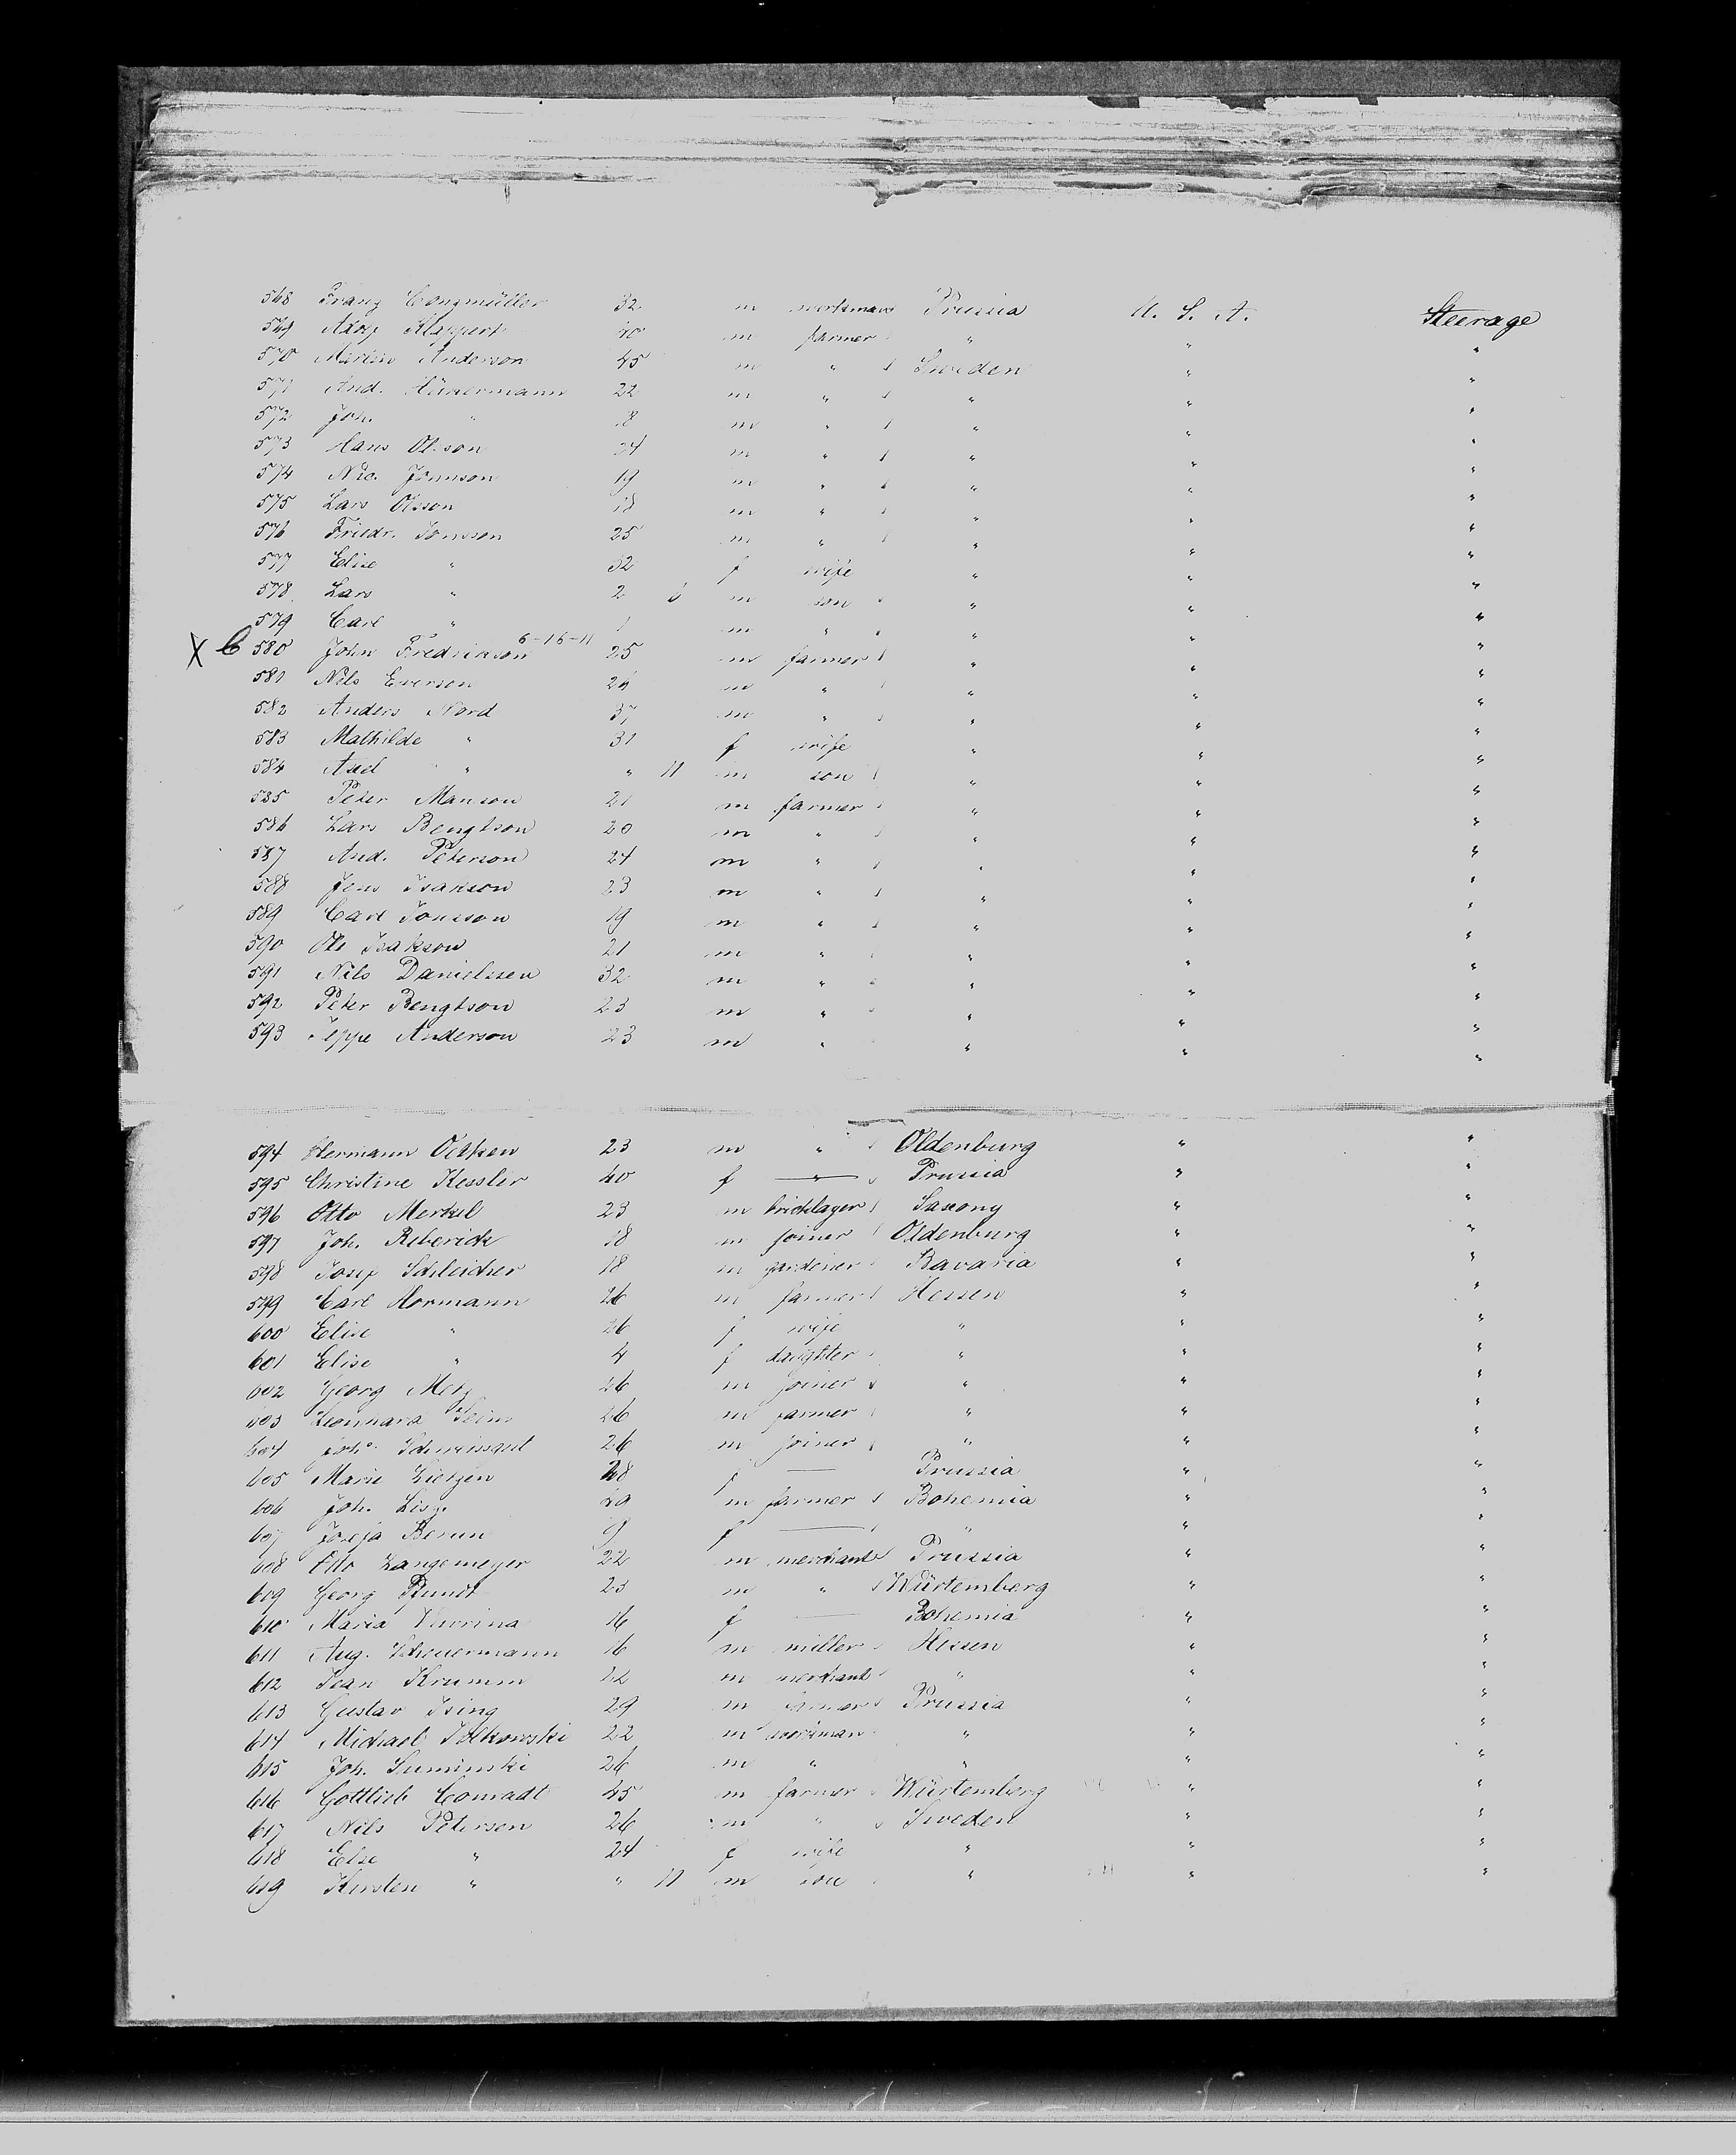 568 Franz Congmüller 32 m workman Prussia U. S. A. Steerage
569 Adolf Klappert 40 m farmer " " "
570 Anderson 45 m " Sweden " "
571 And. 22 m " " " "
572 Joh. " 18 m " " " "
573 Hans Olsson 24 m " " " "
574 Nic. Jönnson 19 m " " " "
575 Lars Olsson 18 m " " " "
576 Friedr. Jonsson 25 m " " " "
577 Elise " 32 f wife " " "
578 Lars " 2 6 m son " " "
579 Carl " 1 m " " " "
X C 580 John Fredrikson 6-16-11 25 m farmer " " "
581 Nils Everson 24 m " " " "
582 Anders Nord 37 m " " " "
583 Mathilde " 31 f wife " " "
584 Axel " " 11 m son " " "
585 Peter Manson 21 m farmer " " "
586 Lars Bengtson 20 m " " " "
587 And. Peterson 24 m " " " "
588 Jens Isakson 23 m " " " "
589 Carl Jonsson 19 m " " " "
590 Ole Isakson 21 m " " " "
591 Nils Danielssen 32 m " " " "
592 Peter Bengtson 23 m " " " "
593 Jeppe Anderson 23 m " " " "
594 Hermann Oetken 23 m " Oldenburg " "
595 Christine Kessler 40 f — Prussia " "
596 Otto Merkel 23 m bricklayer Saxony " "
597 Joh. Reberick 18 m joiner Oldenburg " "
598 Josef Schleicher 18 m gardener Bavaria " "
599 Carl Mormann 26 m farmer Hessen " "
600 Elise " 26 f wife " " "
601 Elise " 4 f daughter " " "
602 Georg Metz 26 m joiner " " "
603 Leonhard 26 m farmer " " "
604 Joh. Schweissgut 26 m joiner " " "
605 Marie Lietzen 28 f — Prussia " "
606 Joh. m farmer Bohemia " "
607 f — " " "
608 Otto Langemeyer 22 m merchant Prussia " "
609 Georg Pfundt 23 m " Würtemberg " "
610 Maria 16 f — Bohemia " "
611 Aug. Scheuermann 16 m miller Hessen " "
612 Jean Krumm 22 m merchant " " "
613 Gustav Ising 29 m farmer Prussia " "
614 Michael 22 m workman " " "
615 Joh. Suminski 26 m " " " "
616 Gottlieb Conradt 45 m farmer Würtemberg " "
617 Nils Petersen 26 m " Sweden " "
618 Else " 24 f wife " " "
619 Kirsten " " 11 m son " " "